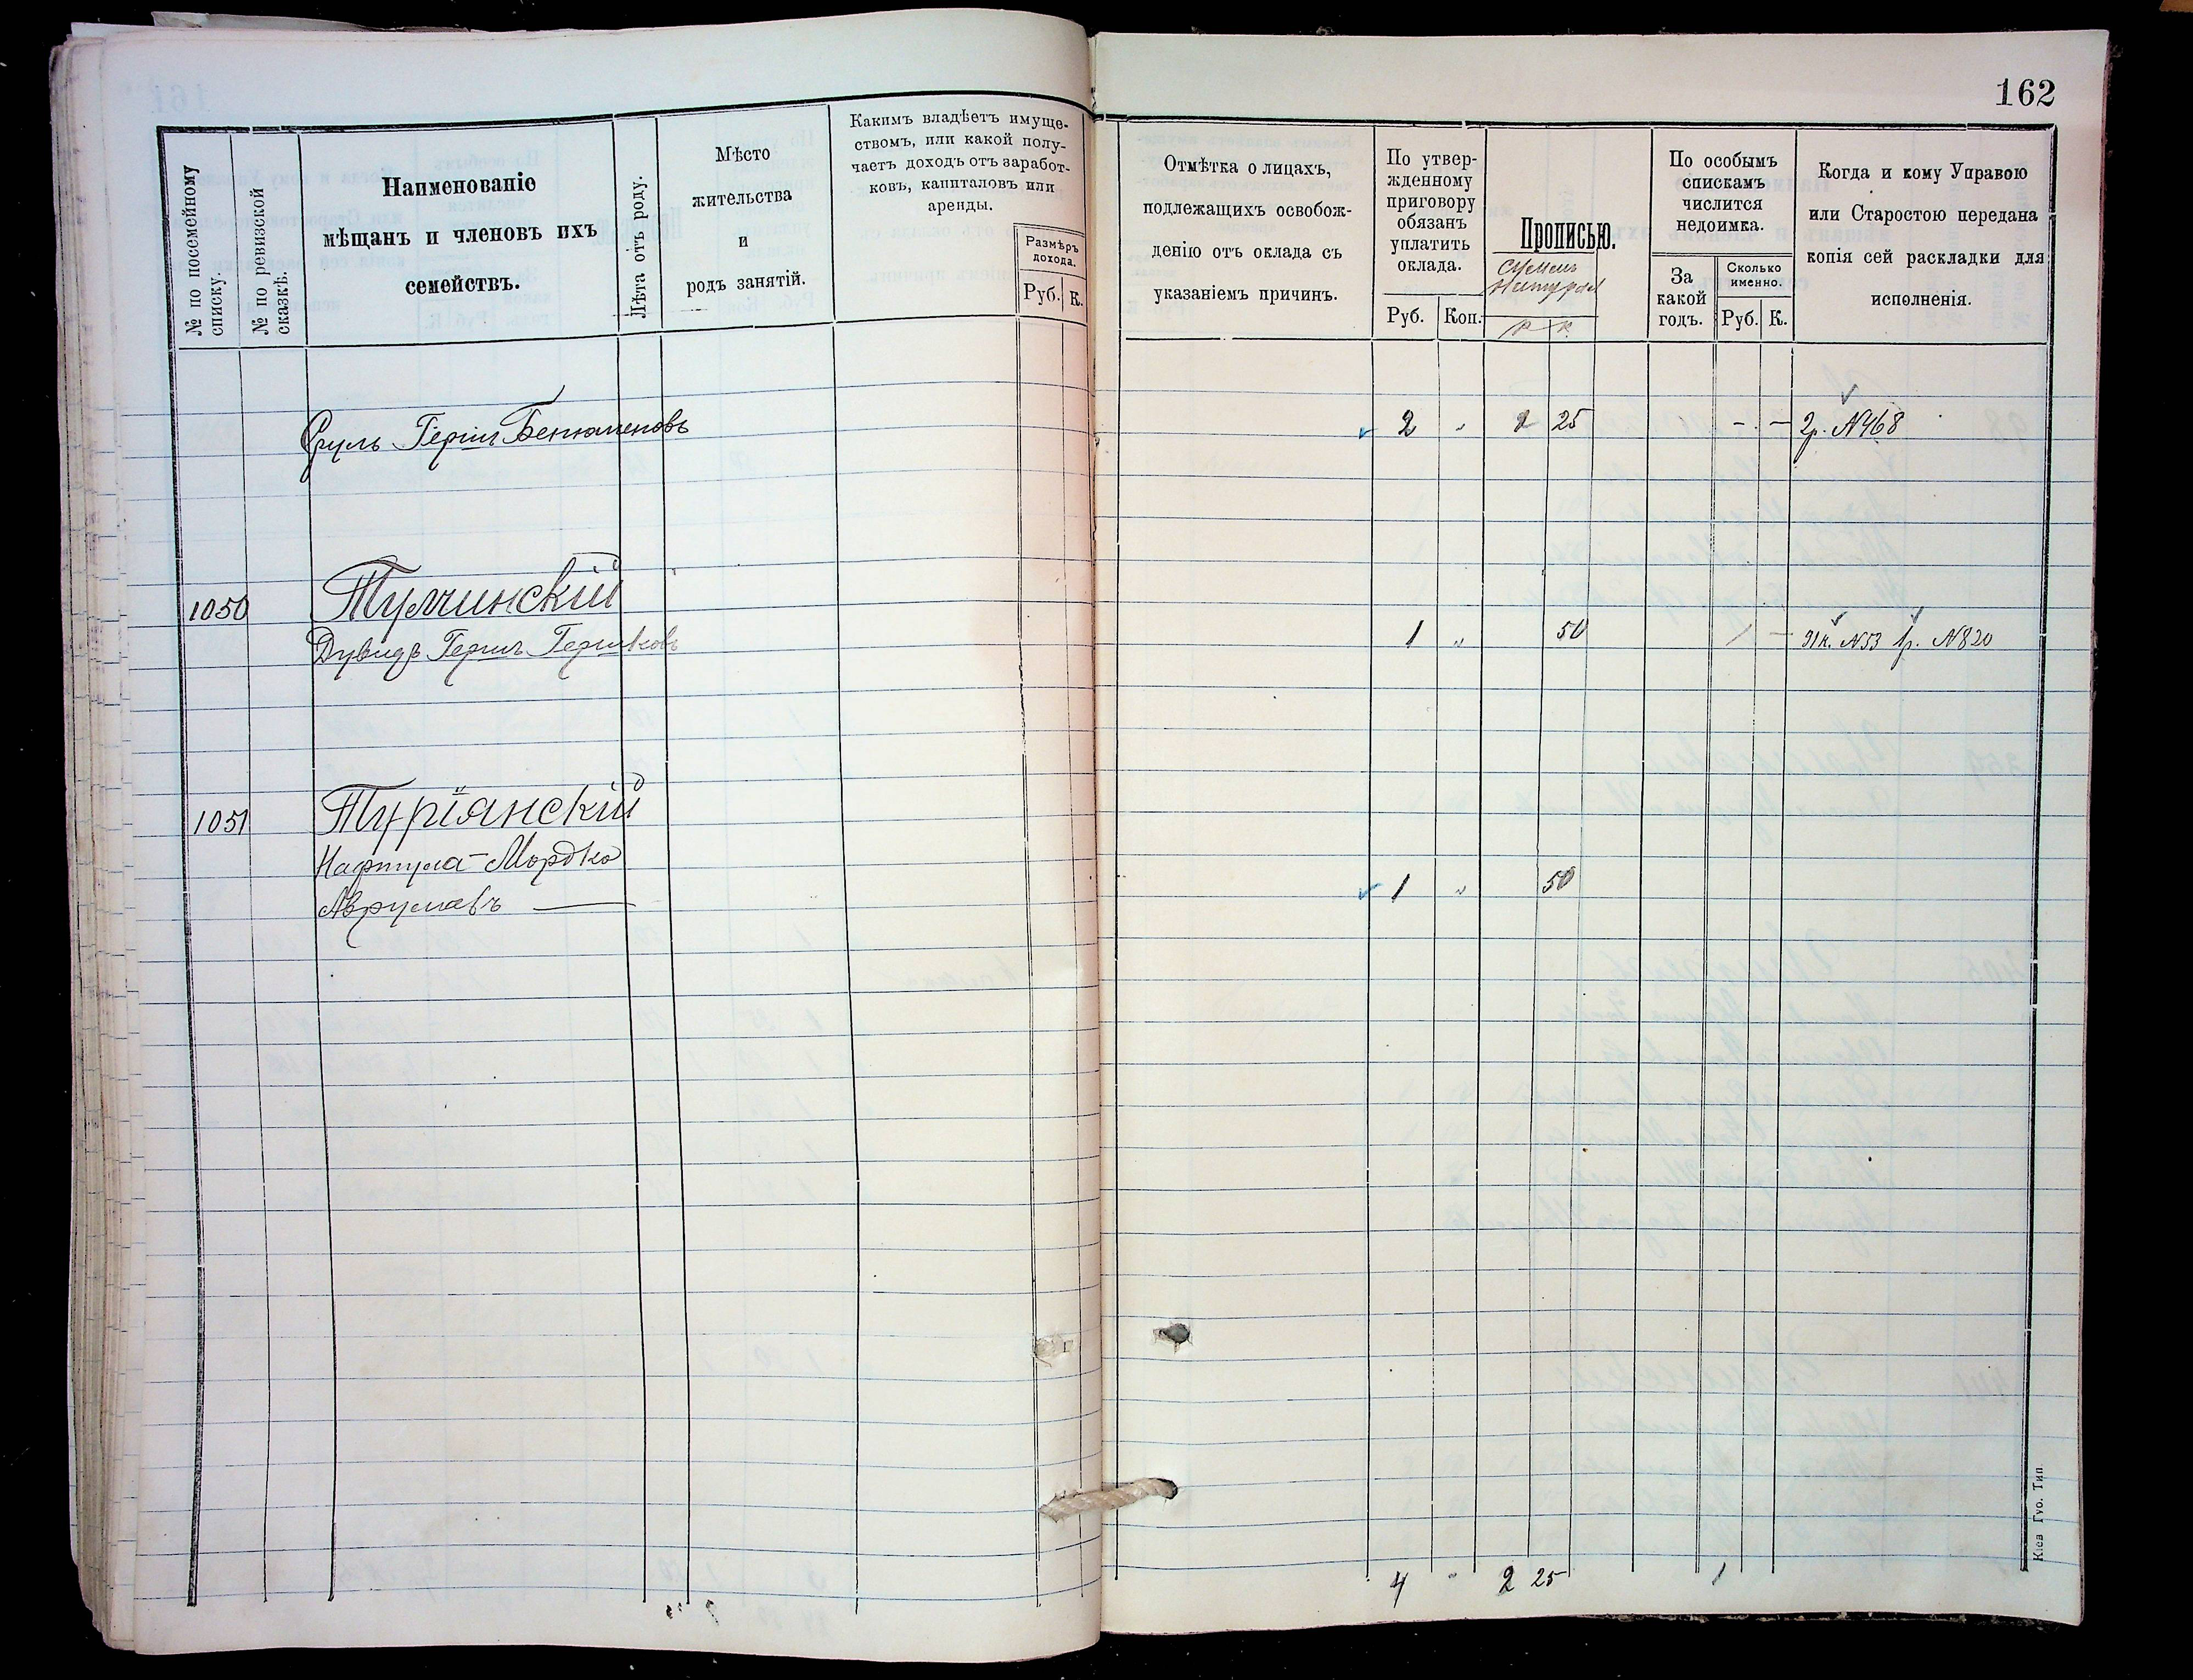 162
№ по посемейному
списку.
№ по ревизской
сказкѣ.
Наименованіе
мѣщанъ и членовъ ихъ
семействъ.
Лѣта отъ роду.
Мѣсто
жительства
и
родъ занятій.
Какимъ владѣетъ имуще-
ствомъ, или какой полу-
чаетъ доходъ отъ заработ-
ковъ, капиталовъ или
аренды.
Размѣръ
дохода.
Руб. К.
Отмѣтка о лицахъ,
подлежащихъ освобож-
денію отъ оклада съ
указаніемъ причинъ.
По утвер-
жденному
приговору
обязанъ
уплатить
оклада.
Руб. Коп.
Прописью.
Р К
По особымъ
спискамъ
числится
недоимка.
За
какой
годъ.
Сколько
именно.
Руб. К.
Когда и кому Управою
или Старостою передана
копія сей раскладки для
исполненія.
Сруль Герш Бенюменовъ 2 " 1 25 - - 2р. №468
1050 Тульчинскій
Дувидъ Гершъ Гершковъ 1 " 50 1 - 31к. №53 1р. №820
1051 Туріянскій
Нафтула-Мордко
Аврумовъ 1 " 50
4 " 2 25 1
Кіев Губ. Тип.